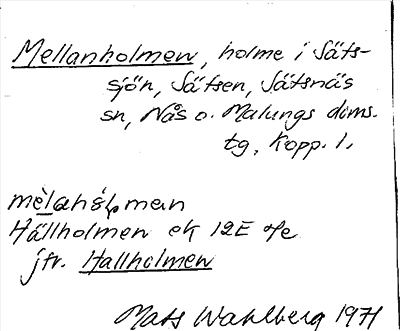 Mellanholmen, holme i Säts-
sjön, Sätsen, Sätsnäs
sn, Nås o. Malungs doms.
tg, Kopp. l.
Hällholmen ek 12E
jfr. Hallholmen
Mats Wahlberg 1971